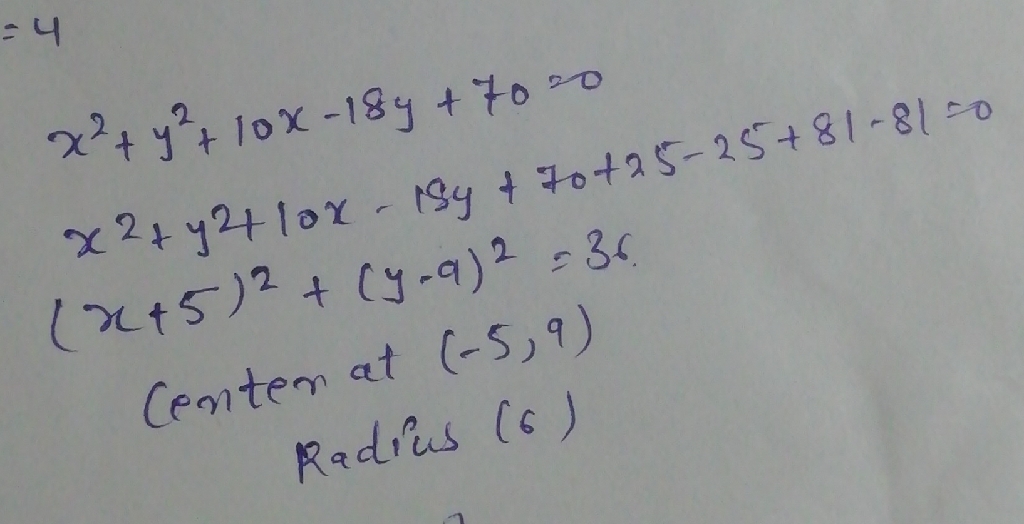 = 4
x² + y² + 10x - 18y + 70 = 0
x² + y² + 10x - 18y + 70 + 25 - 25 + 81 - 81 = 0
(x + 5)² + (y - 9)² = 36.
Center at (-5, 9)
Radius (6)